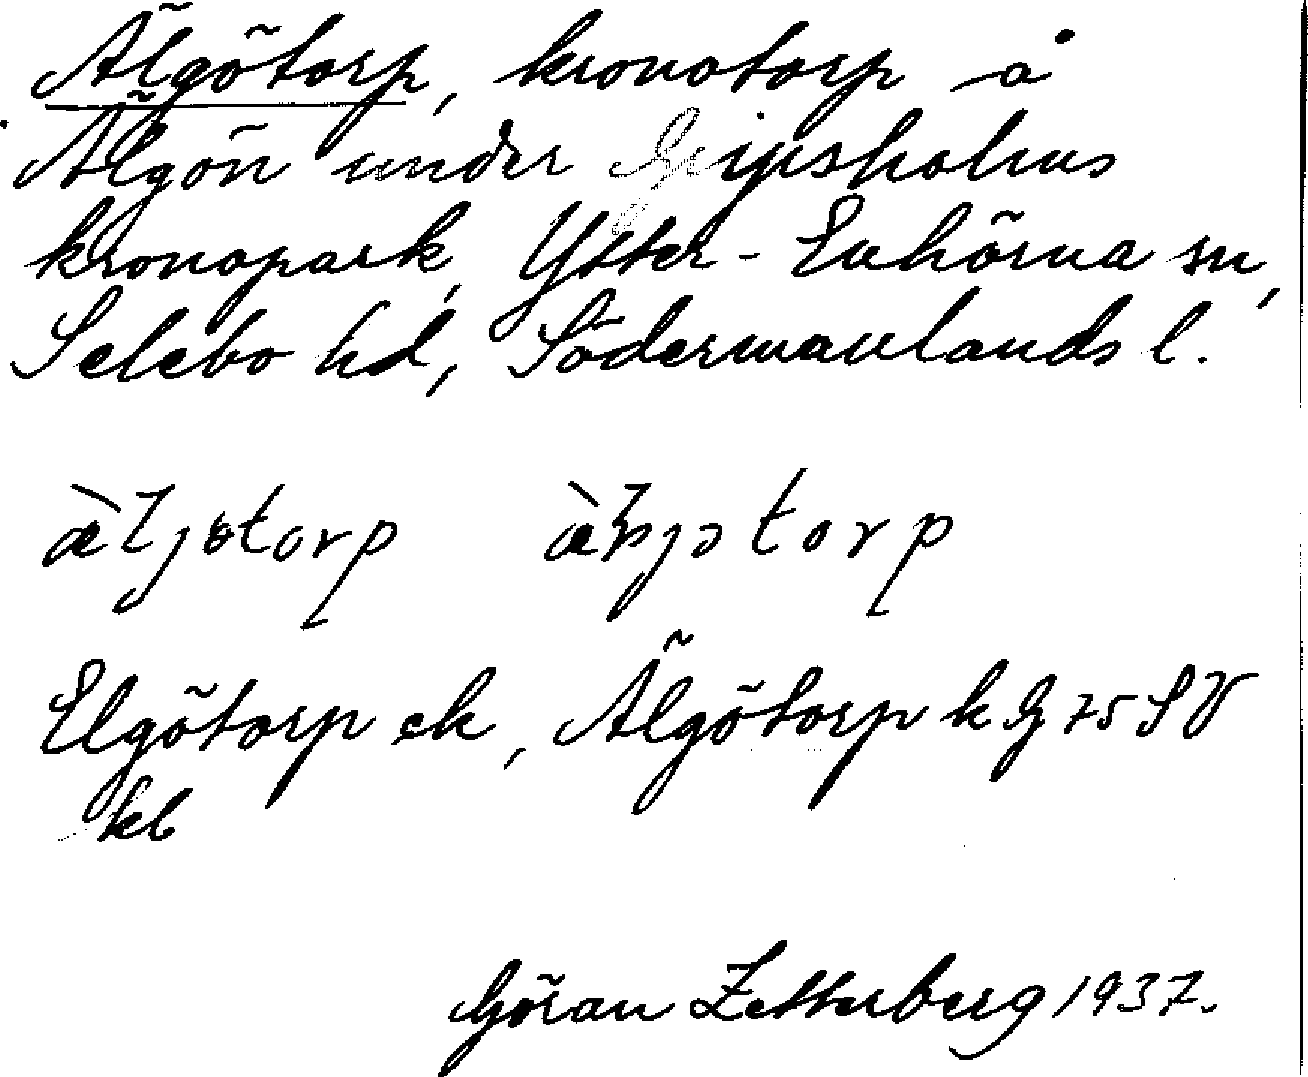 Älgötorp, kronotorp å
Älgön under Gripsholms
kronopark, Ytter-Enhörna sn,
Selebo hd, Södermanlands l.
Elgötorp ek, Älgötorp k G 75 SV
kl
Göran Zetterberg 1937.